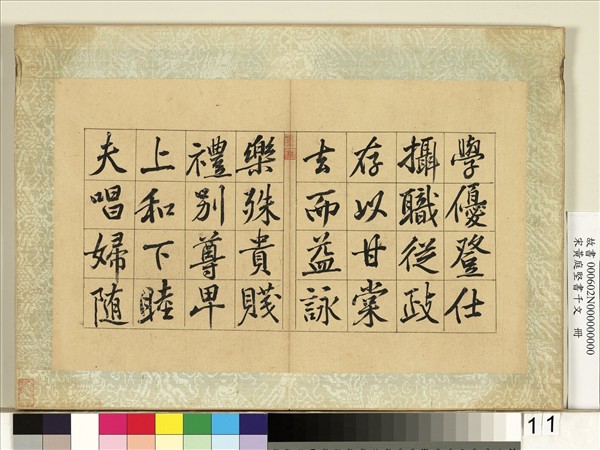 學優登仕
攝職從政
存以甘棠
去而益詠
樂殊貴賤
禮別尊卑
上和下睦
夫唱婦随
故書 000602N000000000
宋黃庭堅書千文 冊
11